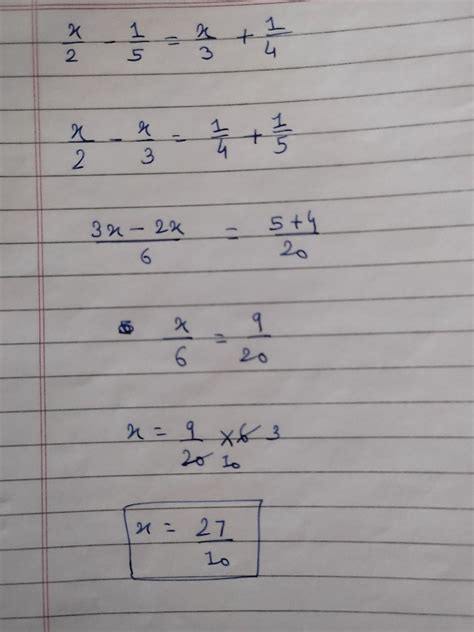 x/2 - 1/5 = x/3 + 1/4
x/2 - x/3 = 1/4 + 1/5
(3x - 2x)/6 = (5+4)/20
x/6 = 9/20
x = 9/20 10 × 6 3
x = 27/10